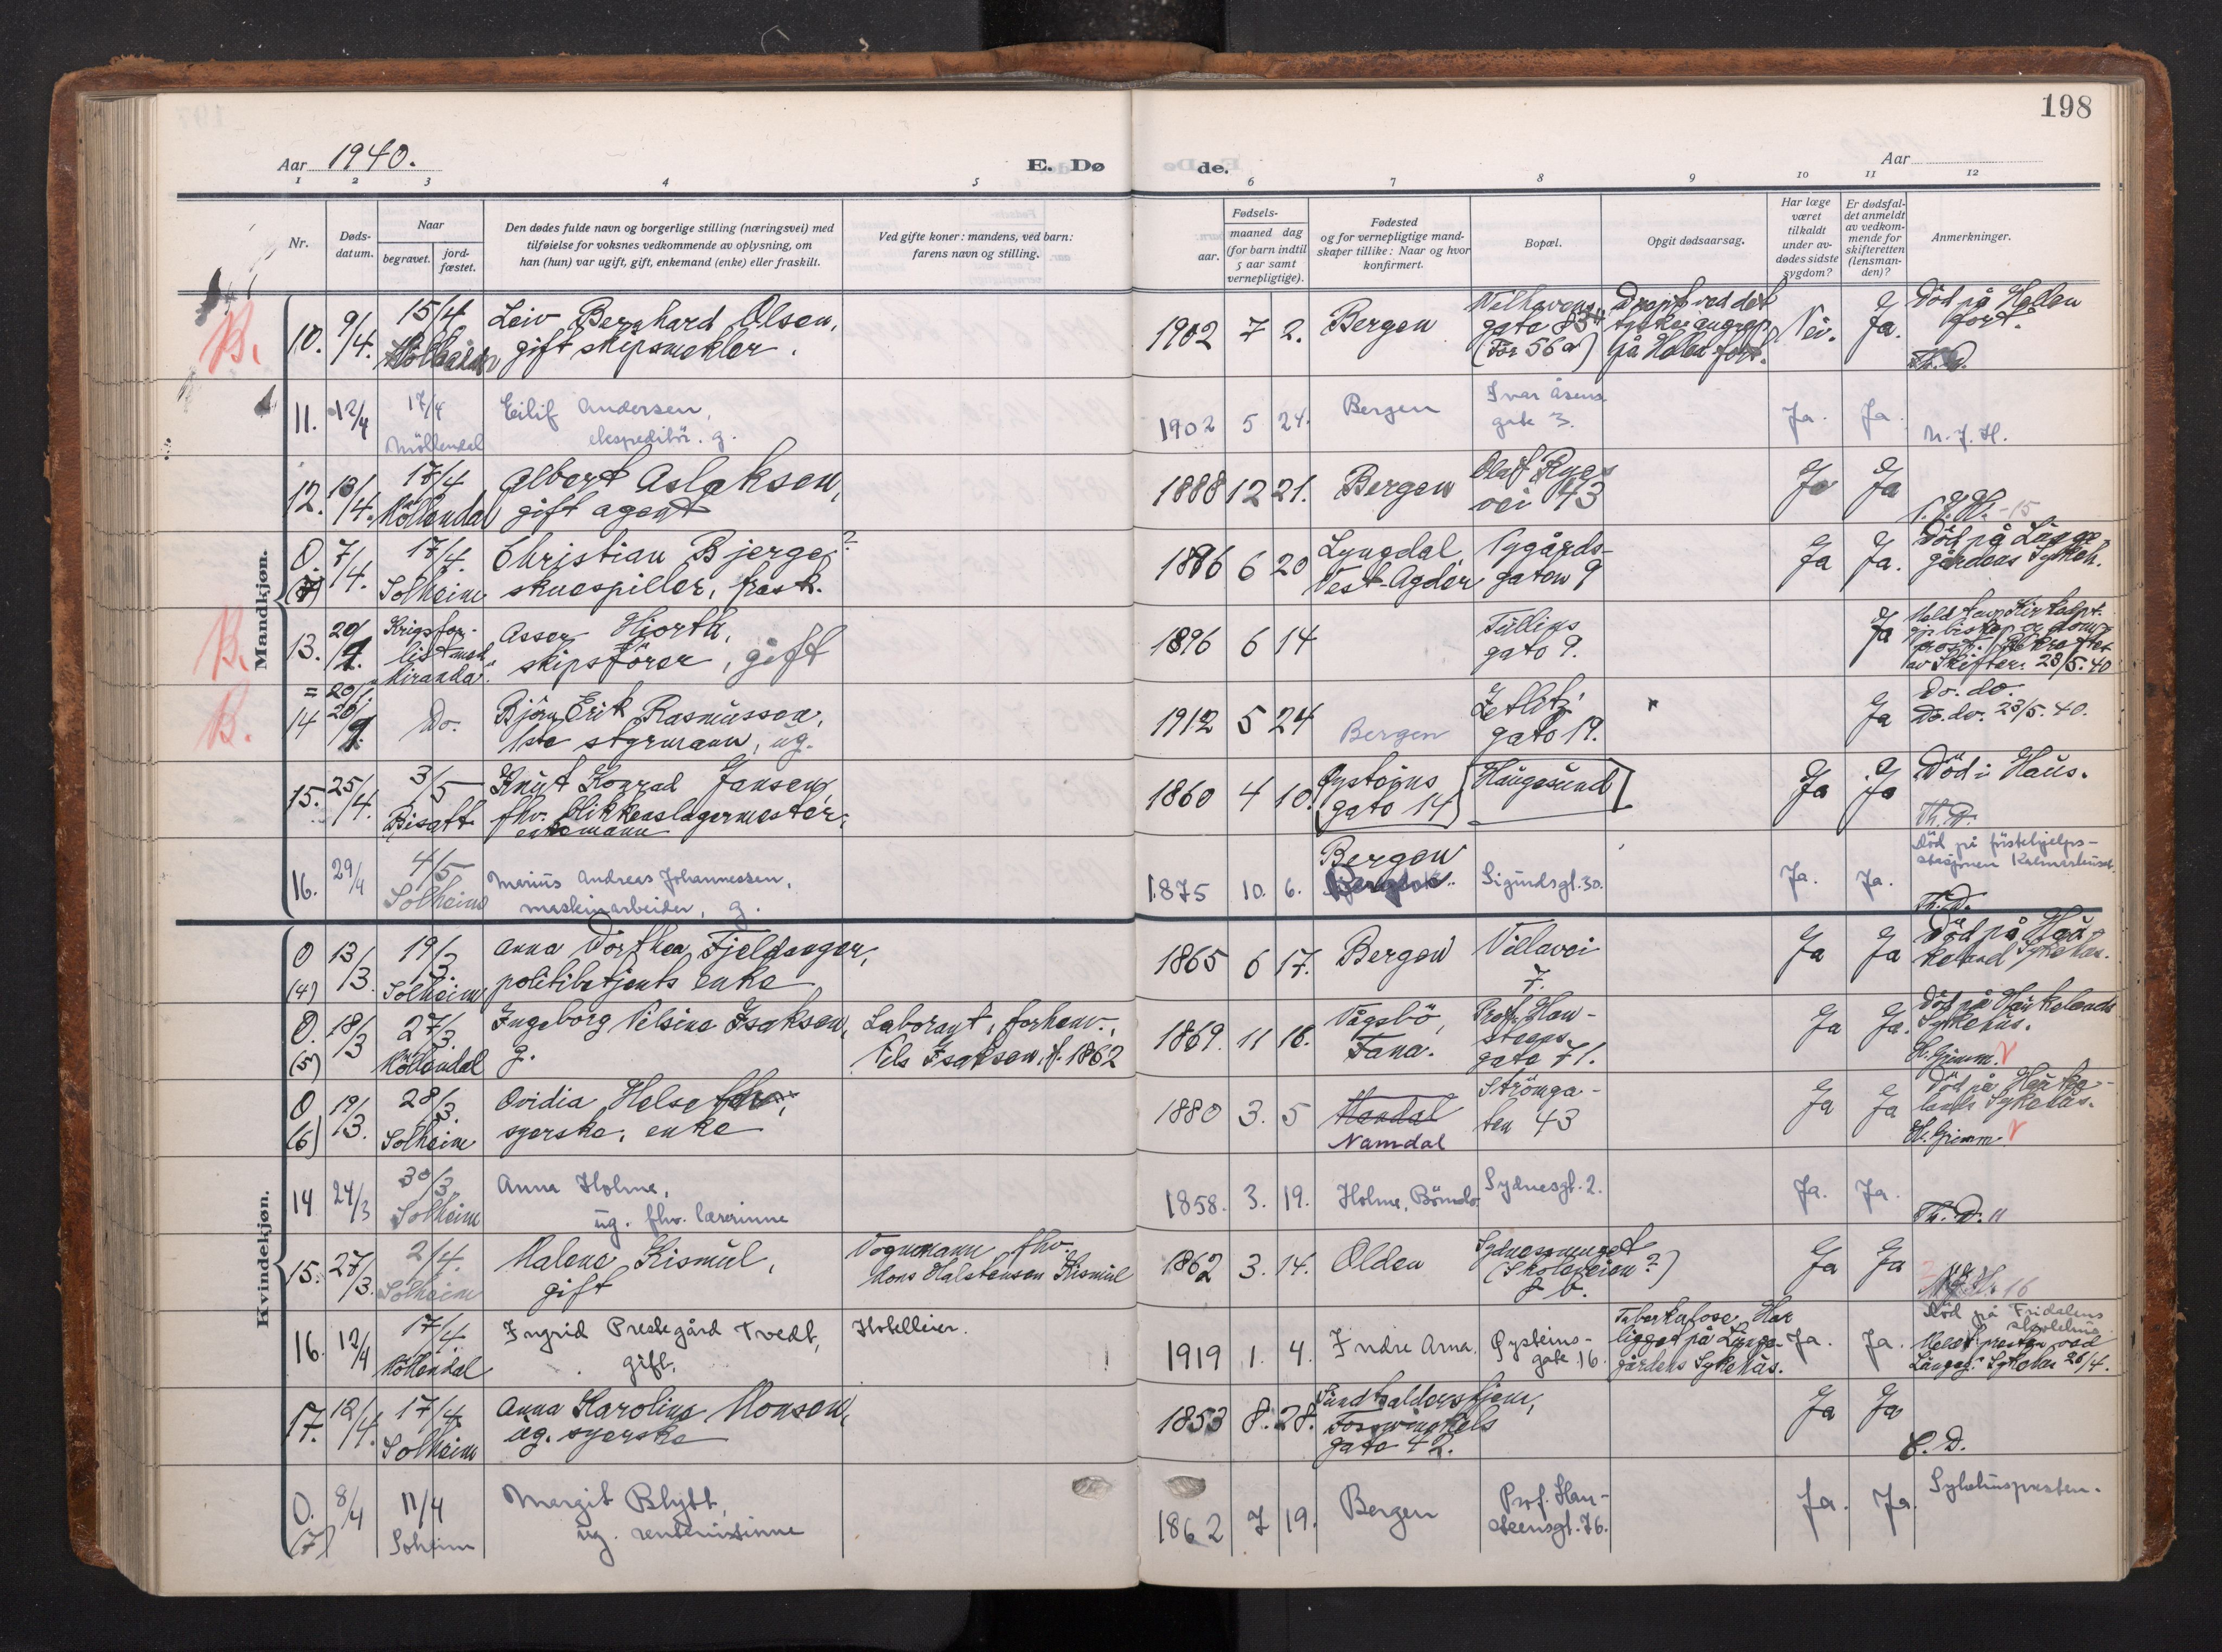 198
Aar 1940.
E. Dø
de.
Aar
1 2 3 4 5 6 7 8 9 10 11 12
Nr.
Døds-
datum.
Naar
begravet.
jord-
fæstet.
Den dødes fulde navn og borgerlige stilling (næringsvei) med
tilføielse for voksnes vedkommende av oplysning, om
han (hun) var ugift, gift, enkemand (enke) eller fraskilt.
Ved gifte koner: mandens, ved barn:
farens navn og stilling.
Fødsels-
aar.
maaned dag
(for barn indtil
5 aar samt
vernepligtige).
Fødested
og for vernepligtige mand-
skaper tillike: Naar og hvor
konfirmert.
Bopæl.
Opgit dødsaarsag.
Har læge
været
tilkaldt
under av-
dødes sidste
sygdom?
Er dødsfal-
det anmeldt
av vedkom-
mende for
skifteretten
(lensman-
den)?
Anmerkninger.
Mandkjøn.
B.
10. 9/4. 15/4
Leiv Bernhard Olsen,
gift skipsmekler.
1902 7 2. Bergen
Welhavens
gate
(før 56a)
Drept ved det
tyske angrep
på Hellen fort.
Nei. Ja.
Död på Hellen
fort.
Th. D.
11. 12/4 17/4
Möllendal
Eilif Andersen,
ekspeditör. g.
1902 5 24. Bergen
Ivar Åsens
gate 3.
Ja. Ja.
N. J. H.
12. 13/4. 17/4
Möllendal
Albert Aslaksen,
gift agent
1888 12 21. Bergen
Olaf Ryes
vei 43
Ja Ja
O. 7/4. 17/4.
Solheim
Christian Bjerge
skuespiller, frask.
1886 6 20
Lyngdal
Vest-Agder
Nygårds-
gaten 9
Ja Ja.
Död på Långe-
gårdens Sykeh.
B.
13. 20/1.
Krigsfor-
list med
"Miranda".
Asser Hjorth,
skipsförer, gift
1896 6 14
Tüllins
gate 9.
Ja
av Skifter. 23/5. 40
B.
14 20/1. Do.
Björn Erik Rasmussen,
1ste styrmann, ug.
1912 5 24 Bergen
Zetlitz
gate 19.
Ja
Do. do.
Do. do. 23/5. 40.
15. 25/4. 3/5
Bisatt
Knut Konrad Jansen,
fhv. blikkenslagermester,
enkemann
1860 4 10.
Øysteins
gate 14
[Haugesund]
Ja Ja
Död i Haus.
Th. D.
16. 29/4 4/5
Solheim
Marius Andreas Johannessen,
maskinarbeider, g.
1875 10. 6.
Bergen
Sigurdsgt. 30.
Ja. Ja.
Död på förstehjelps-
stasjonen Kalmarhuset.
Th. D.
Kvindekjøn.
O (4) 13/3. 19/3.
Solheim
Anna Dorthea Fjeldanger,
politibetjents enke
1865 6 17. Bergen
Villavei
7.
Ja Ja
Död på Hau-
keland Sykehus.
O. (5) 18/3 27/3.
Möllendal
Ingeborg Nilsine Isaksen,
g.
Laborant, forhenv.,
Nils Isaksen, f. 1862
1869. 11 18.
Vågsbö,
Fana.
Prof. Han-
steens
gate 71.
Ja Ja.
Död på Haukelands
Sykehus.
H. Grimm. V
O (6) 19/3. 28/3.
Solheim
Ovidia Helseth,
syerske, enke
1880 3. 5
Mandal
Namdal
Strömga-
ten 43
Ja Ja
Död på Hauke-
lands Sykehus.
H. Grimm. V
14 24/3 30/3
Solheim
Anna Holme,
ug. fhv. lærerinne
1858. 3. 19. Holme, Bömlo. Sydnesgt. 2.
Ja. Ja.
Th. D. 11
15. 27/3. 2/4.
Solheim
Malene Kismul,
gift
Vognmann fhv.
Mons Halstensen Kismul
1862 3. 14. Olden
Sydnessmuget
(Skoleveien?)
Ja Ja
16
16. 12/4 17/4.
Möllendal
Ingrid Prestegård Tvedt,
gift.
Hotelleier.
1919 1. 4. Indre Arna.
Øysteins-
gate 16.
Tuberkulose. Har
ligget på Långe-
gårdens Sykehus.
Ja. Ja.
Död på Fridalens
skolehus.
Meldt presten ved
Långeg. Sykehus 26/4.
17. 12/4. 17/4
Solheim
Anna Karoline Monsen,
ug. syerske
1853 8. 28.
gate 42.
Ja Ja
O. (7) 8/4 11/4
Soheim
Margit Blytt,
ug. rentenistinne
1862 7 19. Bergen
Prof. Han-
steensgt. 76.
Ja. Ja.
Sykehuspresten.